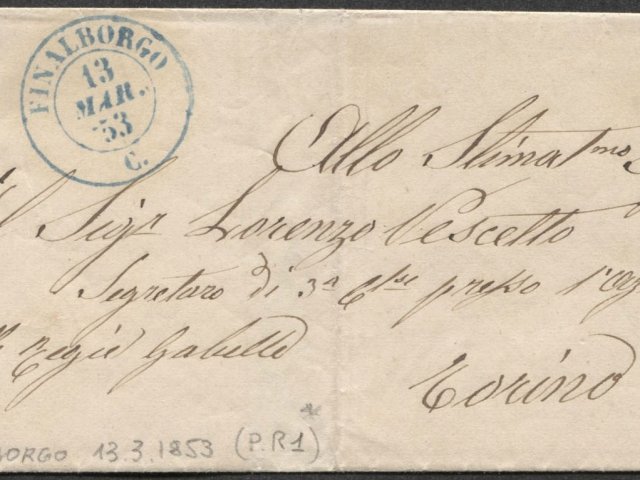 FINALBORGO
13
MAR.
53
C.
Allo Stimat.mo
Sigr Lorenzo Vescetto
Segretaro di 3a Clse presso l'
Regie Gabelle
Torino
BORGO 13.3.1853 (P.R1)
*